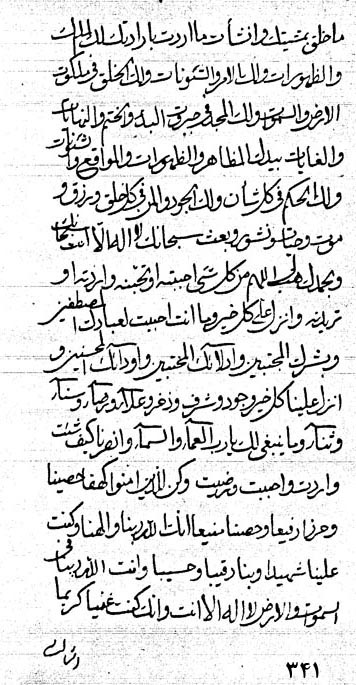 ما خلق بمشیتك وانشأت ما اردت بارادتك لك الملك
والظهورات ولك الامر والشئونات ولك الخلق فی ملكوت
الارض والسموات ولك المجد فی جبروت البدء والختم والنهایات
والغایات بیدك المظاهر والظهورات والمواقع
ولك الحكم فی كل شأن ولك الجود والمن فی كل خلق ورزق و
موت وحیات ونشور وبعث سبحانك لا اله الا انت سبحانك
وبحمدك اللهم من كل شیء احببته او تحبنه واردته او
تریدنه وانزل علی كل خیر وما انت احببت لعبادك المصطفین
المجتبین وادلائك المختبین واودائك المحسنین و
انزل علینا كل خیر وجود وشرف وذخر وعلاء وبهاء وسناء
وثناء وما ینبغی لك یا رب العماء والسماء وانصرنا كیف شئت
واردت واحببت ورضیت وكن للذین امنوا كهفا حصینا
وحرزا رفیعا وحصنا منیعا انك الله ربنا والهنا وكنت
علینا شهیدا وبنا رقیبا وحسیبا وانت الله ربنا فی
السموات والارض لا اله الا انت وانك كنت غنیا كریما
۳۴۱